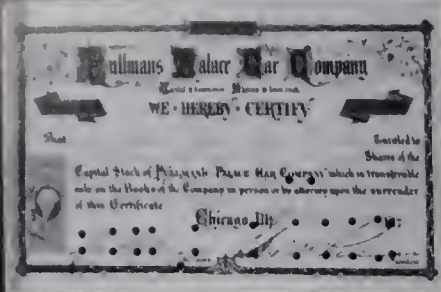 Pullmans Palace Car Company
WE · HEREBY · CERTIFY
That
Entitled to
Shares of the
Capital Stock of PULLMAN'S PALACE CAR COMPANY which is transferable
only on the Books of the Company in person or by attorney upon the surrender
of this Certificate
Chicago, Ill.